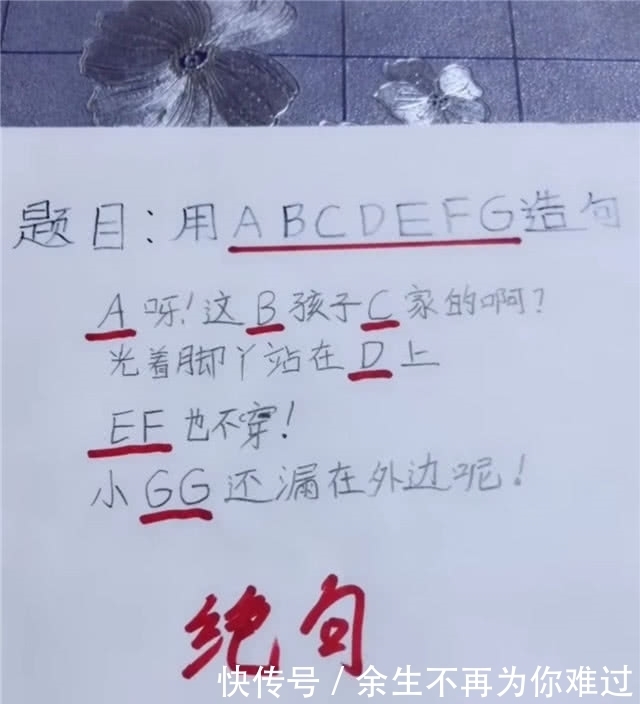 题目：用ABCDEFG造句
A呀！这B孩子C家的啊？
光着脚丫站在D上
EF也不穿！
小GG还漏在外边呢！
绝句
快传号 / 余生不再为你难过